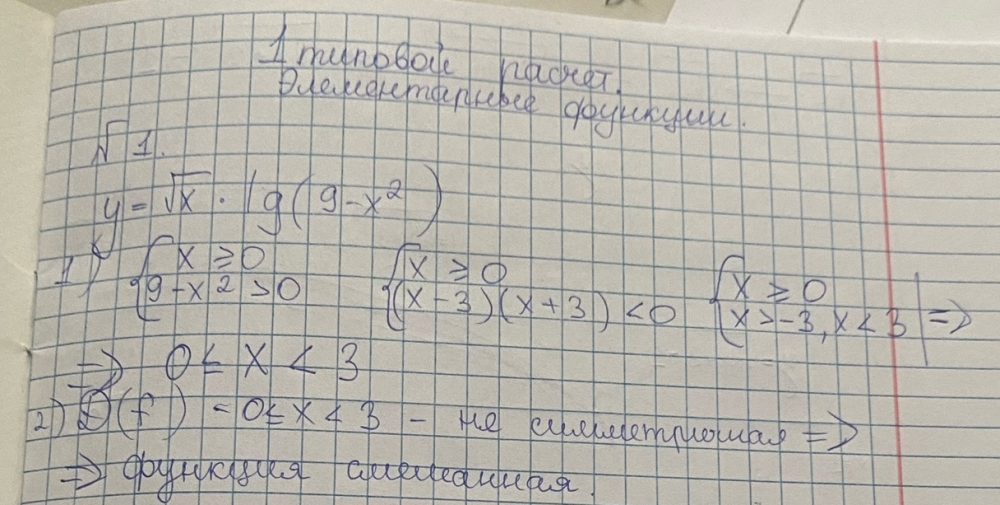 1 типовой расчет.
Элементарные функции.
№1.
y = √x · lg(9-x²)
1) { x ≥ 0 { x ≥ 0 { x ≥ 0
{ 9-x² > 0 { (x-3)(x+3) < 0 { x > -3, x < 3 | =>
=> 0 ≤ x < 3
2) D(f) - 0 ≤ x < 3 - не симметричная =>
=> функция смешанная.